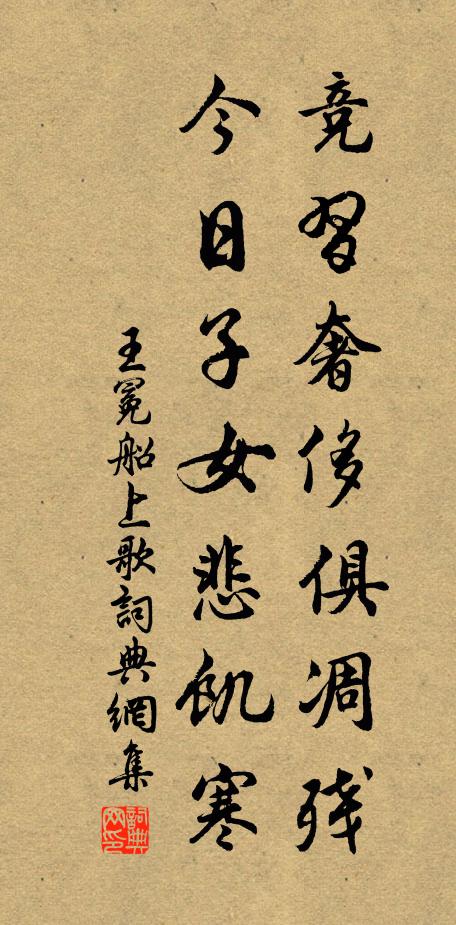 竞習奢侈俱凋残
今日子女悲飢寒
王冕船上歌詞典網集
詞典网印